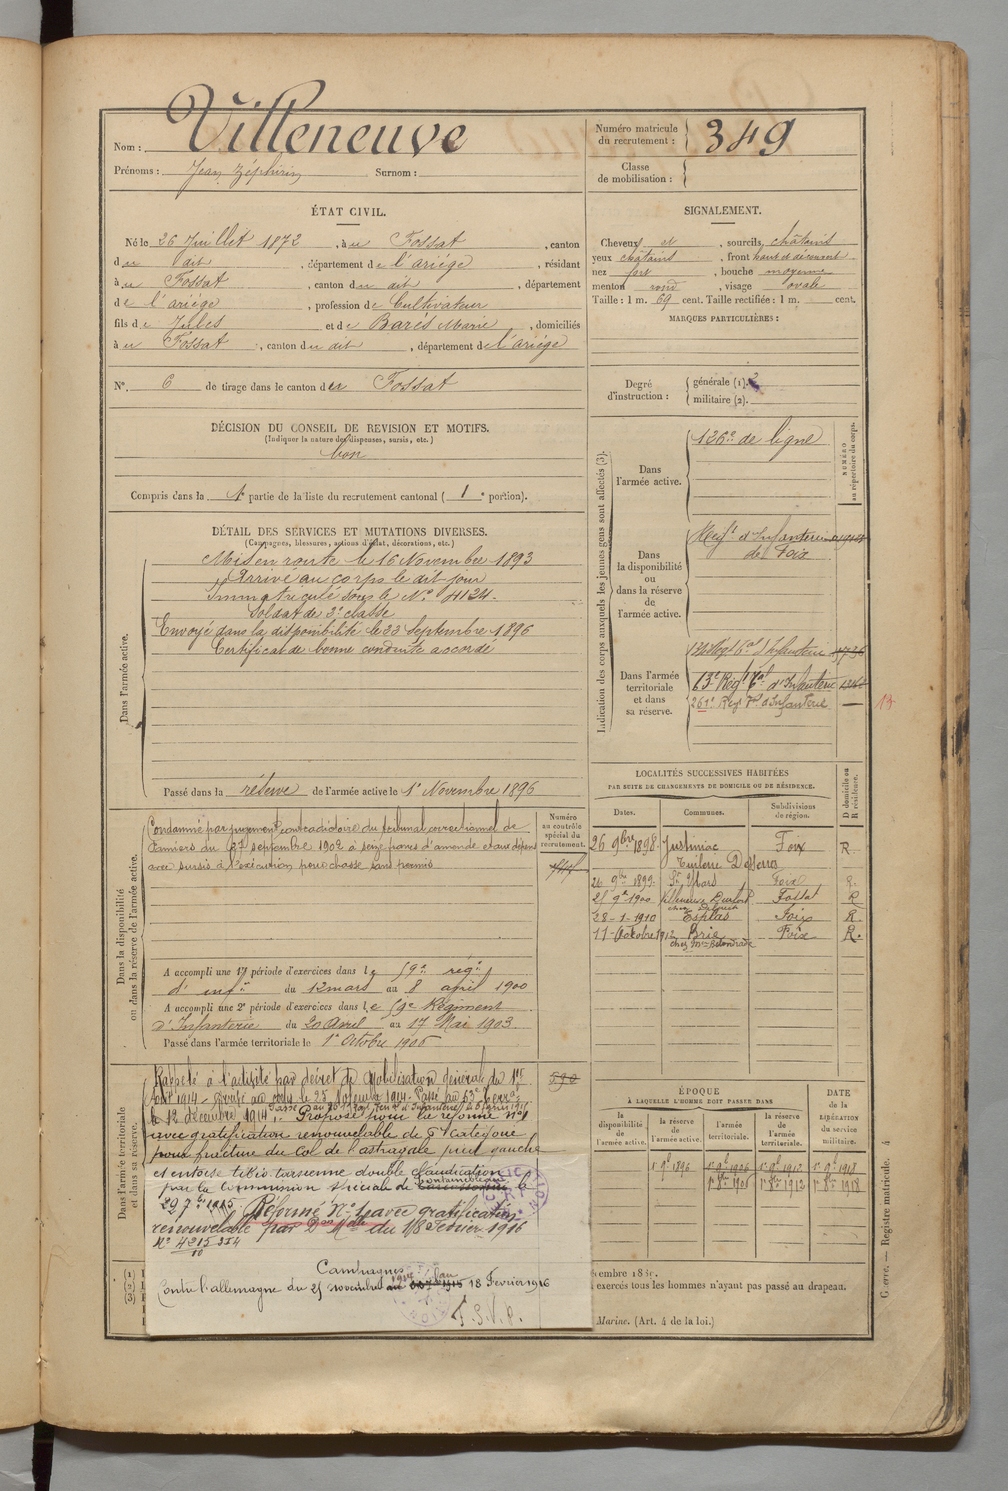 Nom : Villeneuve
Prénoms : Jean Zéphirin Surnom :
Numéro matricule du recrutement : 349
Classe de mobilisation :
ÉTAT CIVIL.
Né le 26 Juillet 1872, à u Fossat, canton
du dit, département de l'ariége, résidant
à u Fossat, canton du dit, département
de l'ariége, profession de Cultivateur
fils de Jules et de Barés Marie, domiciliés
à u Fossat, canton du dit, département de l'ariége
N° 6 de tirage dans le canton du Fossat
SIGNALEMENT.
Cheveux et, sourcils châtains
yeux châtains, front haut et découvert
nez fort, bouche moyenne
menton rond, visage ovale
Taille : 1 m. 69 cent. Taille rectifiée : 1 m. cent.
MARQUES PARTICULIÈRES :
Degré d'instruction :
générale (1).
militaire (2).
DÉCISION DU CONSEIL DE REVISION ET MOTIFS.
(Indiquer la nature des dispenses, sursis, etc.)
bon
Compris dans la 1e partie de la liste du recrutement cantonal ( 1 e portion).
DÉTAIL DES SERVICES ET MUTATIONS DIVERSES.
(Campagnes, blessures, actions d'éclat, décorations, etc.)
Dans l'armée active.
Mis en route le 16 Novembre 1893
Arrivé au corps le dit jour
Immatriculé sous le N° 4124.
Soldat de 2e classe
Envoyé dans la disponibilité le 23 Septembre 1896
Certificat de bonne conduite accordé
Passé dans la réserve de l'armée active le 1er Novembre 1896
Indication des corps auxquels les jeunes gens sont affectés (3).
NUMÉRO au répertoire du corps.
Dans l'armée active.
126e de ligne
Dans la disponibilité ou dans la réserve de l'armée active.
Regt d'Infanterie
de Foix
Dans l'armée territoriale et dans sa réserve.
63e Regt Tal d'Infanterie
261e Reg Tal d'Infanterie
13
LOCALITÉS SUCCESSIVES HABITÉES
PAR SUITE DE CHANGEMENTS DE DOMICILE OU DE RÉSIDENCE.
Dates. Communes. Subdivisions de région. D domicile ou R résidence.
26 9bre 1898 Justiniac Foix R.
Tuilerie
26 9bre 1899 St Ybars Foix R.
1900 Fossat R
28-1-1910 Esplas Foix R.
11-Octobre 1912 Brie Foix R.
Dans la disponibilité ou dans la réserve de l'armée active.
Numéro au contrôle spécial du recrutement.
Condamné par jugement contradictoire du tribunal correctionnel de
Pamiers du 27 septembre 1902 à seize francs d'amende et aux dépens
avec sursis à l'exécution pour chasse sans permis
A accompli une 1re période d'exercices dans le 59e rég.t
d'inf.ie du 12 mars au 8 avril 1900
A accompli une 2e période d'exercices dans le 59e Régiment
d'Infanterie du 20 Avril au 17 Mai 1903
Passé dans l'armée territoriale le 1er Octobre 1906
Dans l'armée territoriale et dans sa réserve.
Rappelé à l'activité par décret de Mobilisation générale du 1er
Août 1914 - Arrivé au corps le 25 Novembre 1914. Passé au 63e Terr.
le 12 décembre 1914.
Proposé pour la réforme N°1
avec gratification renouvelable de catégorie
pour fracture du Col de l'astragale pied gauche
et entorse tibio tarsienne double claudication
par la Commission spéciale de Fontainebleau le
29 7bre 1915. Réformé N°1 avec gratification
renouvelable par Don Mlle du 18 Février 1916
N° 4215 354
10
Campagnes
Contre l'allemagne du 25 novembre 1914 au 18 Fevrier 1916
T.S.V.P.
590
ÉPOQUE
À LAQUELLE L'HOMME DOIT PASSER DANS
la disponibilité de l'armée active. la réserve de l'armée active. l'armée territoriale. la réserve de l'armée territoriale. DATE de la LIBÉRATION du service militaire.
1er 9bre 1896 1er 9bre 1906 1er 9bre 1912 1er 9bre 1918
1er 8bre 1906 1er 8bre 1912 1er 8bre 1918
exercés tous les hommes n'ayant pas passé au drapeau.
Marine. (Art. 4 de la loi.)
Guerre. — Registre matricule. 4